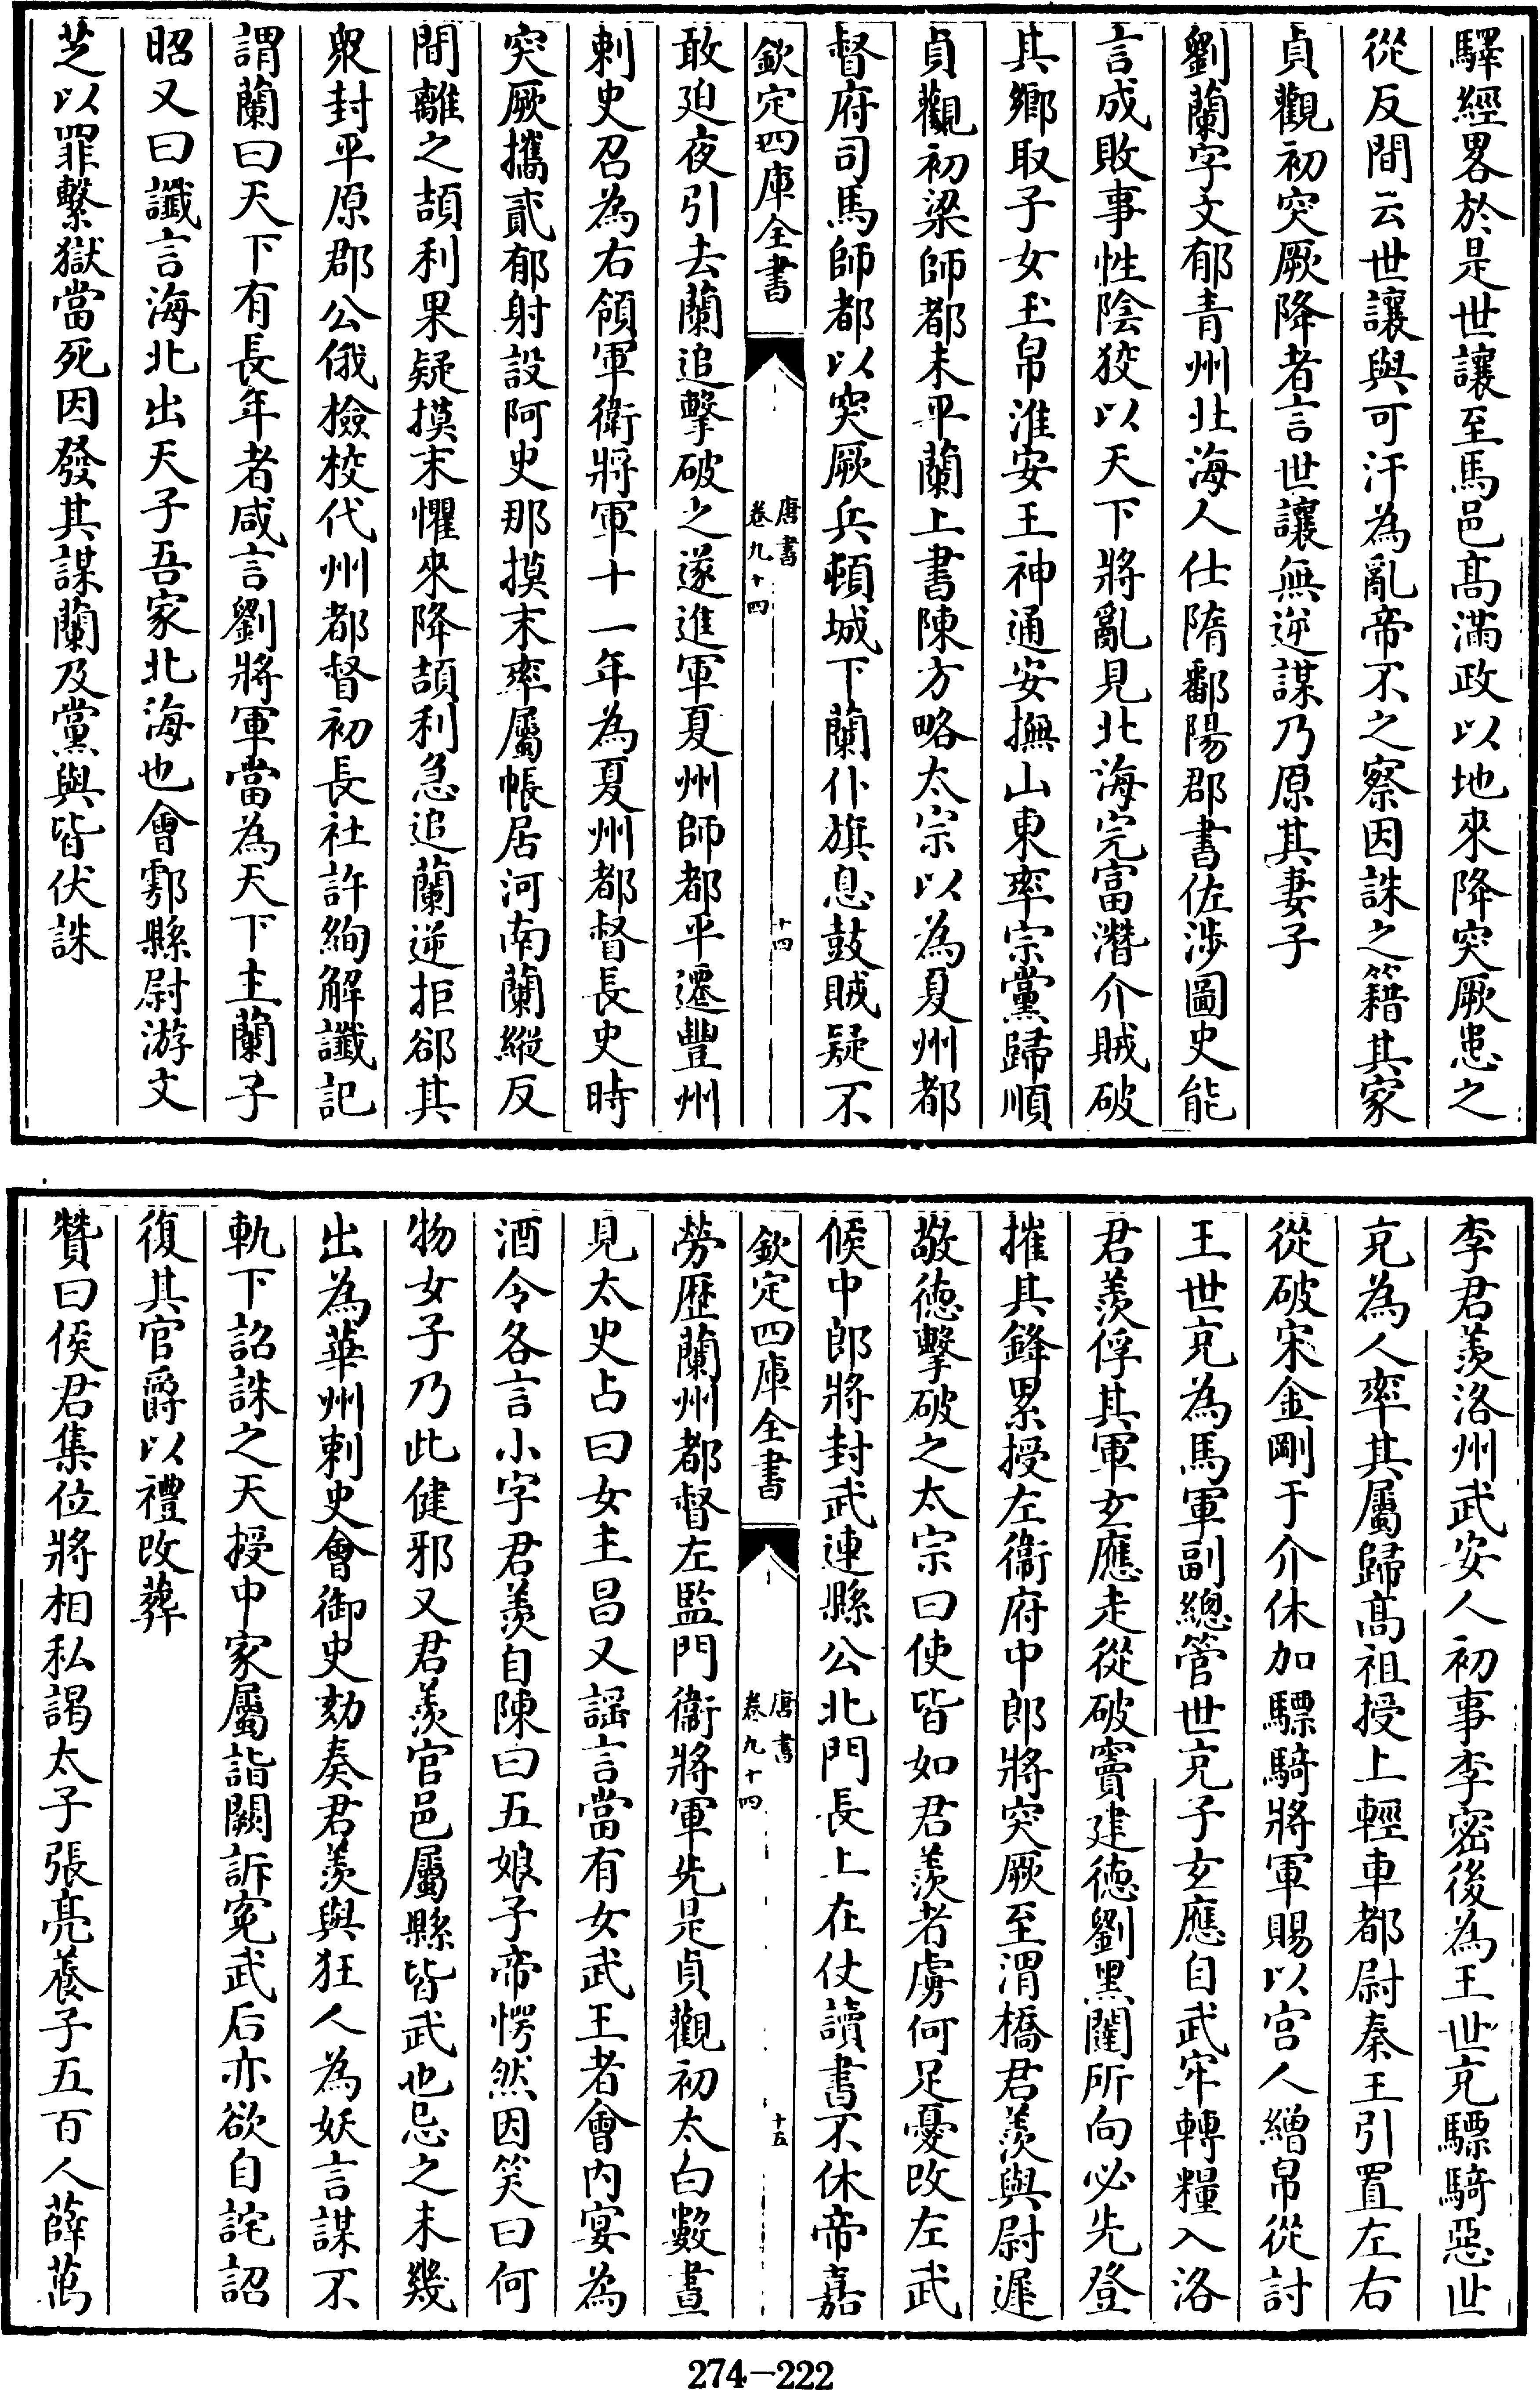 驛經畧於是世讓至馬邑髙滿政以地來降突厥患之
從反間云世讓與可汗為亂帝不之察因誅之籍其家
貞觀初突厥降者言世讓無逆謀乃原其妻子
劉蘭字文郁青州北海人仕隋鄱陽郡書佐涉圖史能
言成敗事性陰狡以天下將亂見北海完富濳介賊破
其鄉取子女玉帛淮安王神通安撫山東率宗黨歸順
貞觀初梁師都未平蘭上書陳方略太宗以為夏州都
督府司馬師都以突厥兵頓城下蘭仆旗息鼓賊疑不
欽定四庫全書
唐書
卷九十四
十四
敢廹夜引去蘭追擊破之遂進軍夏州師都平遷豐州
刺史召為右領軍衛將軍十一年為夏州都督長史時
突厥攜貳郁射設阿史那摸末率屬帳居河南蘭縱反
間離之頡利果疑摸末懼來降頡利急追蘭逆拒郤其
衆封平原郡公俄檢校代州都督初長社許絢解讖記
謂蘭曰天下有長年者咸言劉將軍當為天下主蘭子
昭又曰讖言海北出天子吾家北海也會鄠縣尉游文
芝以罪繫獄當死因發其謀蘭及黨與皆伏誅
李君羨洛州武安人初事李密後為王世充驃騎惡世
充為人率其屬歸髙祖授上輕車都尉秦王引置左右
從破宋金剛于介休加驃騎將軍賜以宫人繒帛從討
王世充為馬軍副總管世充子玄應自武牢轉糧入洛
君羨俘其軍玄應走從破竇建徳劉黒闥所向必先登
摧其鋒累授左衞府中郎將突厥至渭橋君羨與尉遲
敬徳擊破之太宗曰使皆如君羨者虜何足憂改左武
候中郎將封武連縣公北門長上在仗讀書不休帝嘉
欽定四庫全書
唐書
卷九十四
十五
勞歴蘭州都督左監門衞將軍先是貞觀初太白數晝
見太史占曰女主昌又謡言當有女武王者會内宴為
酒令各言小字君羨自陳曰五娘子帝愕然因笑曰何
物女子乃此健邪又君羨官邑屬縣皆武也忌之未幾
出為華州刺史會御史劾奏君羨與狂人為妖言謀不
軌下詔誅之天授中家屬詣闕訴寃武后亦欲自詫詔
復其官爵以禮改葬
贊曰侯君集位將相私謁太子張亮養子五百人薛萬
274-222